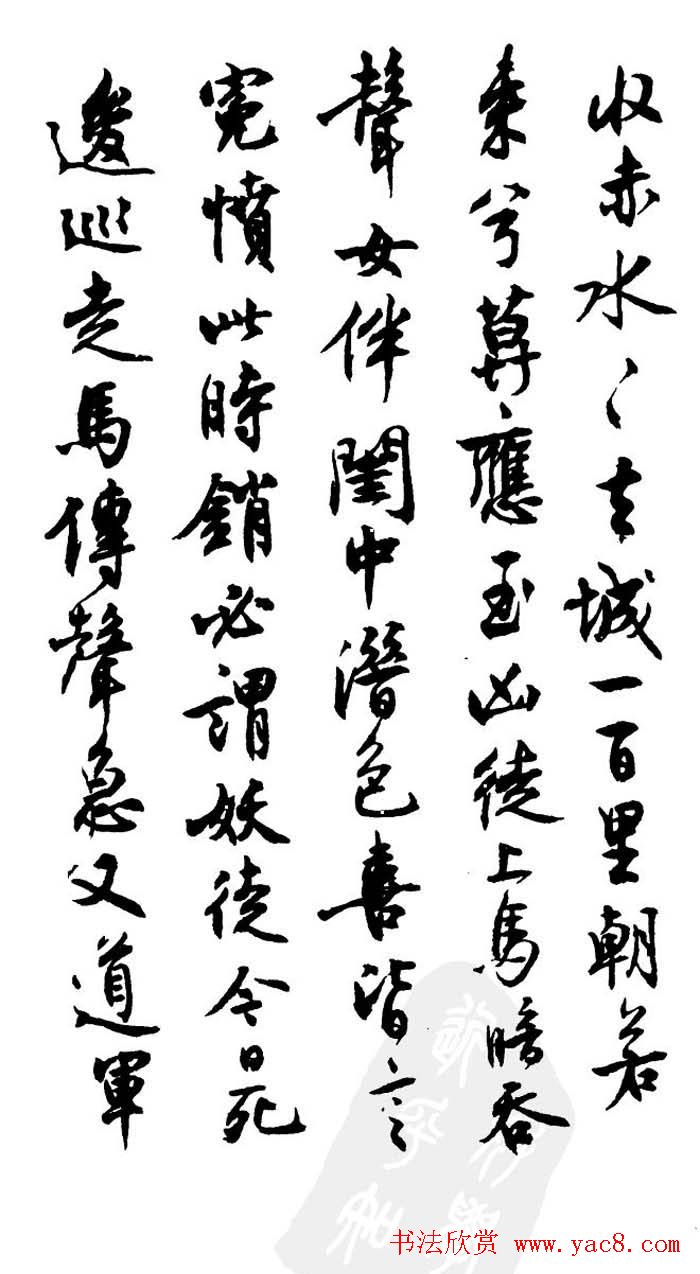 收赤水々々去城一百里朝若
來兮暮應至凶徒上馬暗吞
聲女伴閨中潛色喜皆言
冤憤此時銷必謂妖徒今日死
逡巡走馬傳聲急又道軍
书法欣赏 www.yac8.com